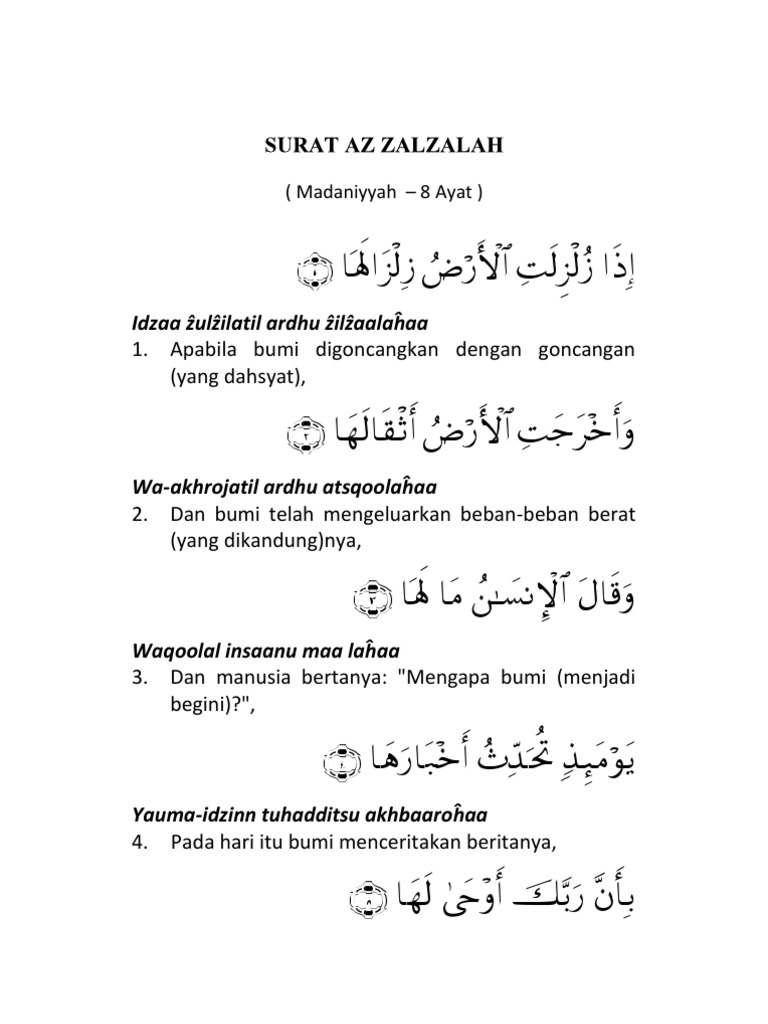 SURAT AZ ZALZALAH
( Madaniyyah – 8 Ayat )
إِذَا زُلْزِلَتِ ٱلْأَرْضُ زِلْزَالَهَا ﴿١﴾
Idzaa ẑulẑilatil ardhu ẑilẑaalaĥaa
1. Apabila bumi digoncangkan dengan goncangan
(yang dahsyat),
وَأَخْرَجَتِ ٱلْأَرْضُ أَثْقَالَهَا ﴿٢﴾
Wa-akhrojatil ardhu atsqoolaĥaa
2. Dan bumi telah mengeluarkan beban-beban berat
(yang dikandung)nya,
وَقَالَ ٱلْإِنسَـٰنُ مَا لَهَا ﴿٣﴾
Waqoolal insaanu maa laĥaa
3. Dan manusia bertanya: "Mengapa bumi (menjadi
begini)?",
يَوْمَئِذٍ تُحَدِّثُ أَخْبَارَهَا ﴿٤﴾
Yauma-idzinn tuhadditsu akhbaaroĥaa
4. Pada hari itu bumi menceritakan beritanya,
بِأَنَّ رَبَّكَ أَوْحَىٰ لَهَا ﴿٥﴾